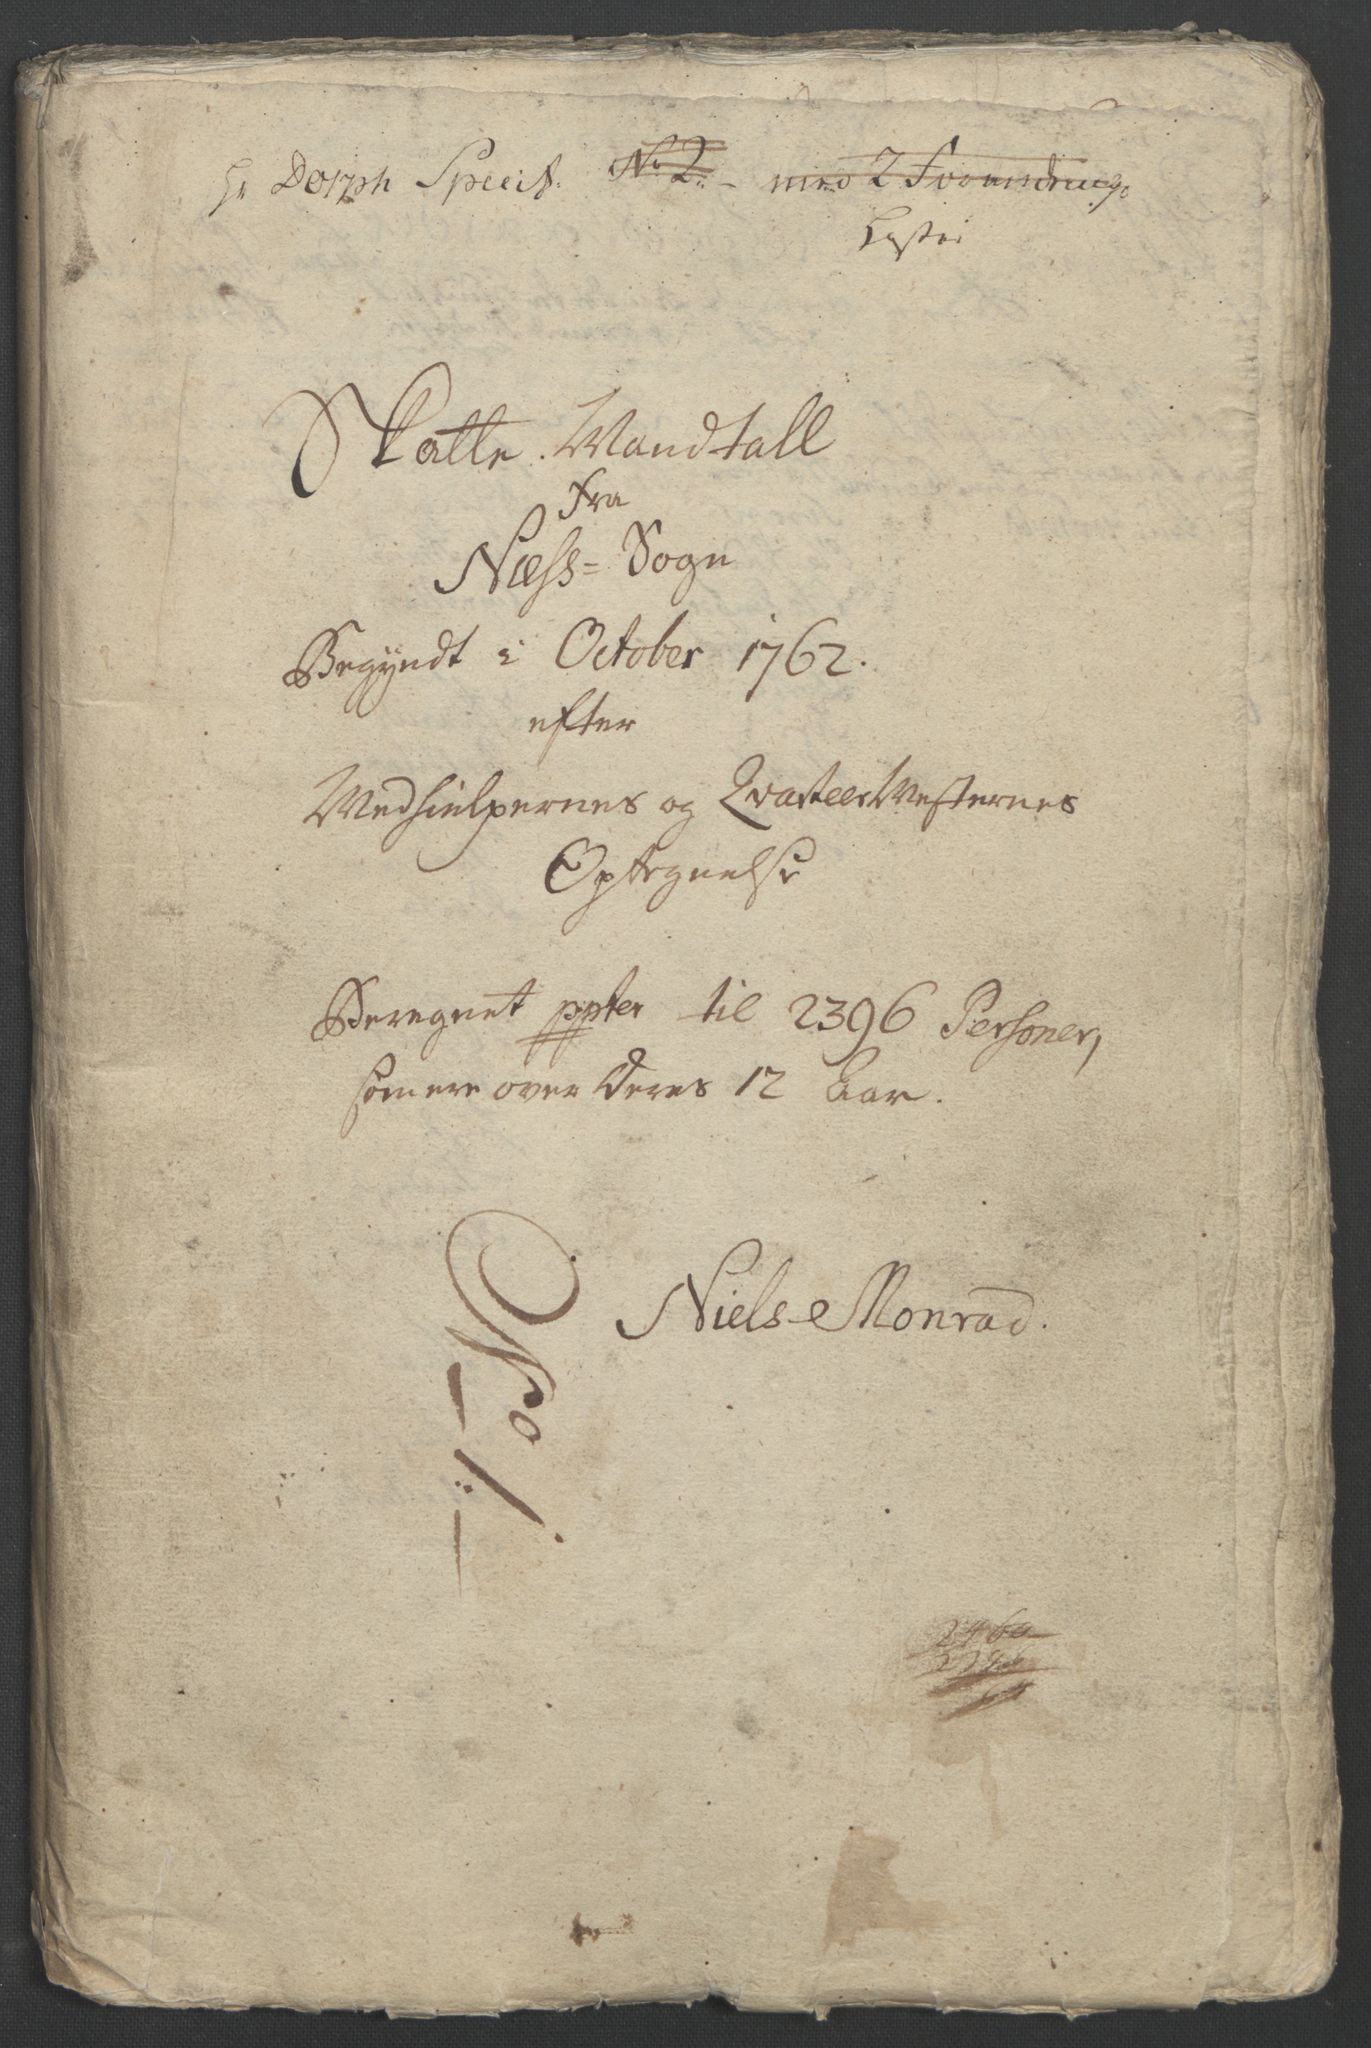 Hr Dorph Specif. No 2. med 2
Skatte Mandtall
fra
Næss= Sogn
Begyndt i October 1762.
efter
Medhielpernes og QvarteerMesternes
Optegnelse
Beregnet ppter til 2396 Personer,
som ere over deres 12 Aar.
Niels Monrad.
No 1.
2460